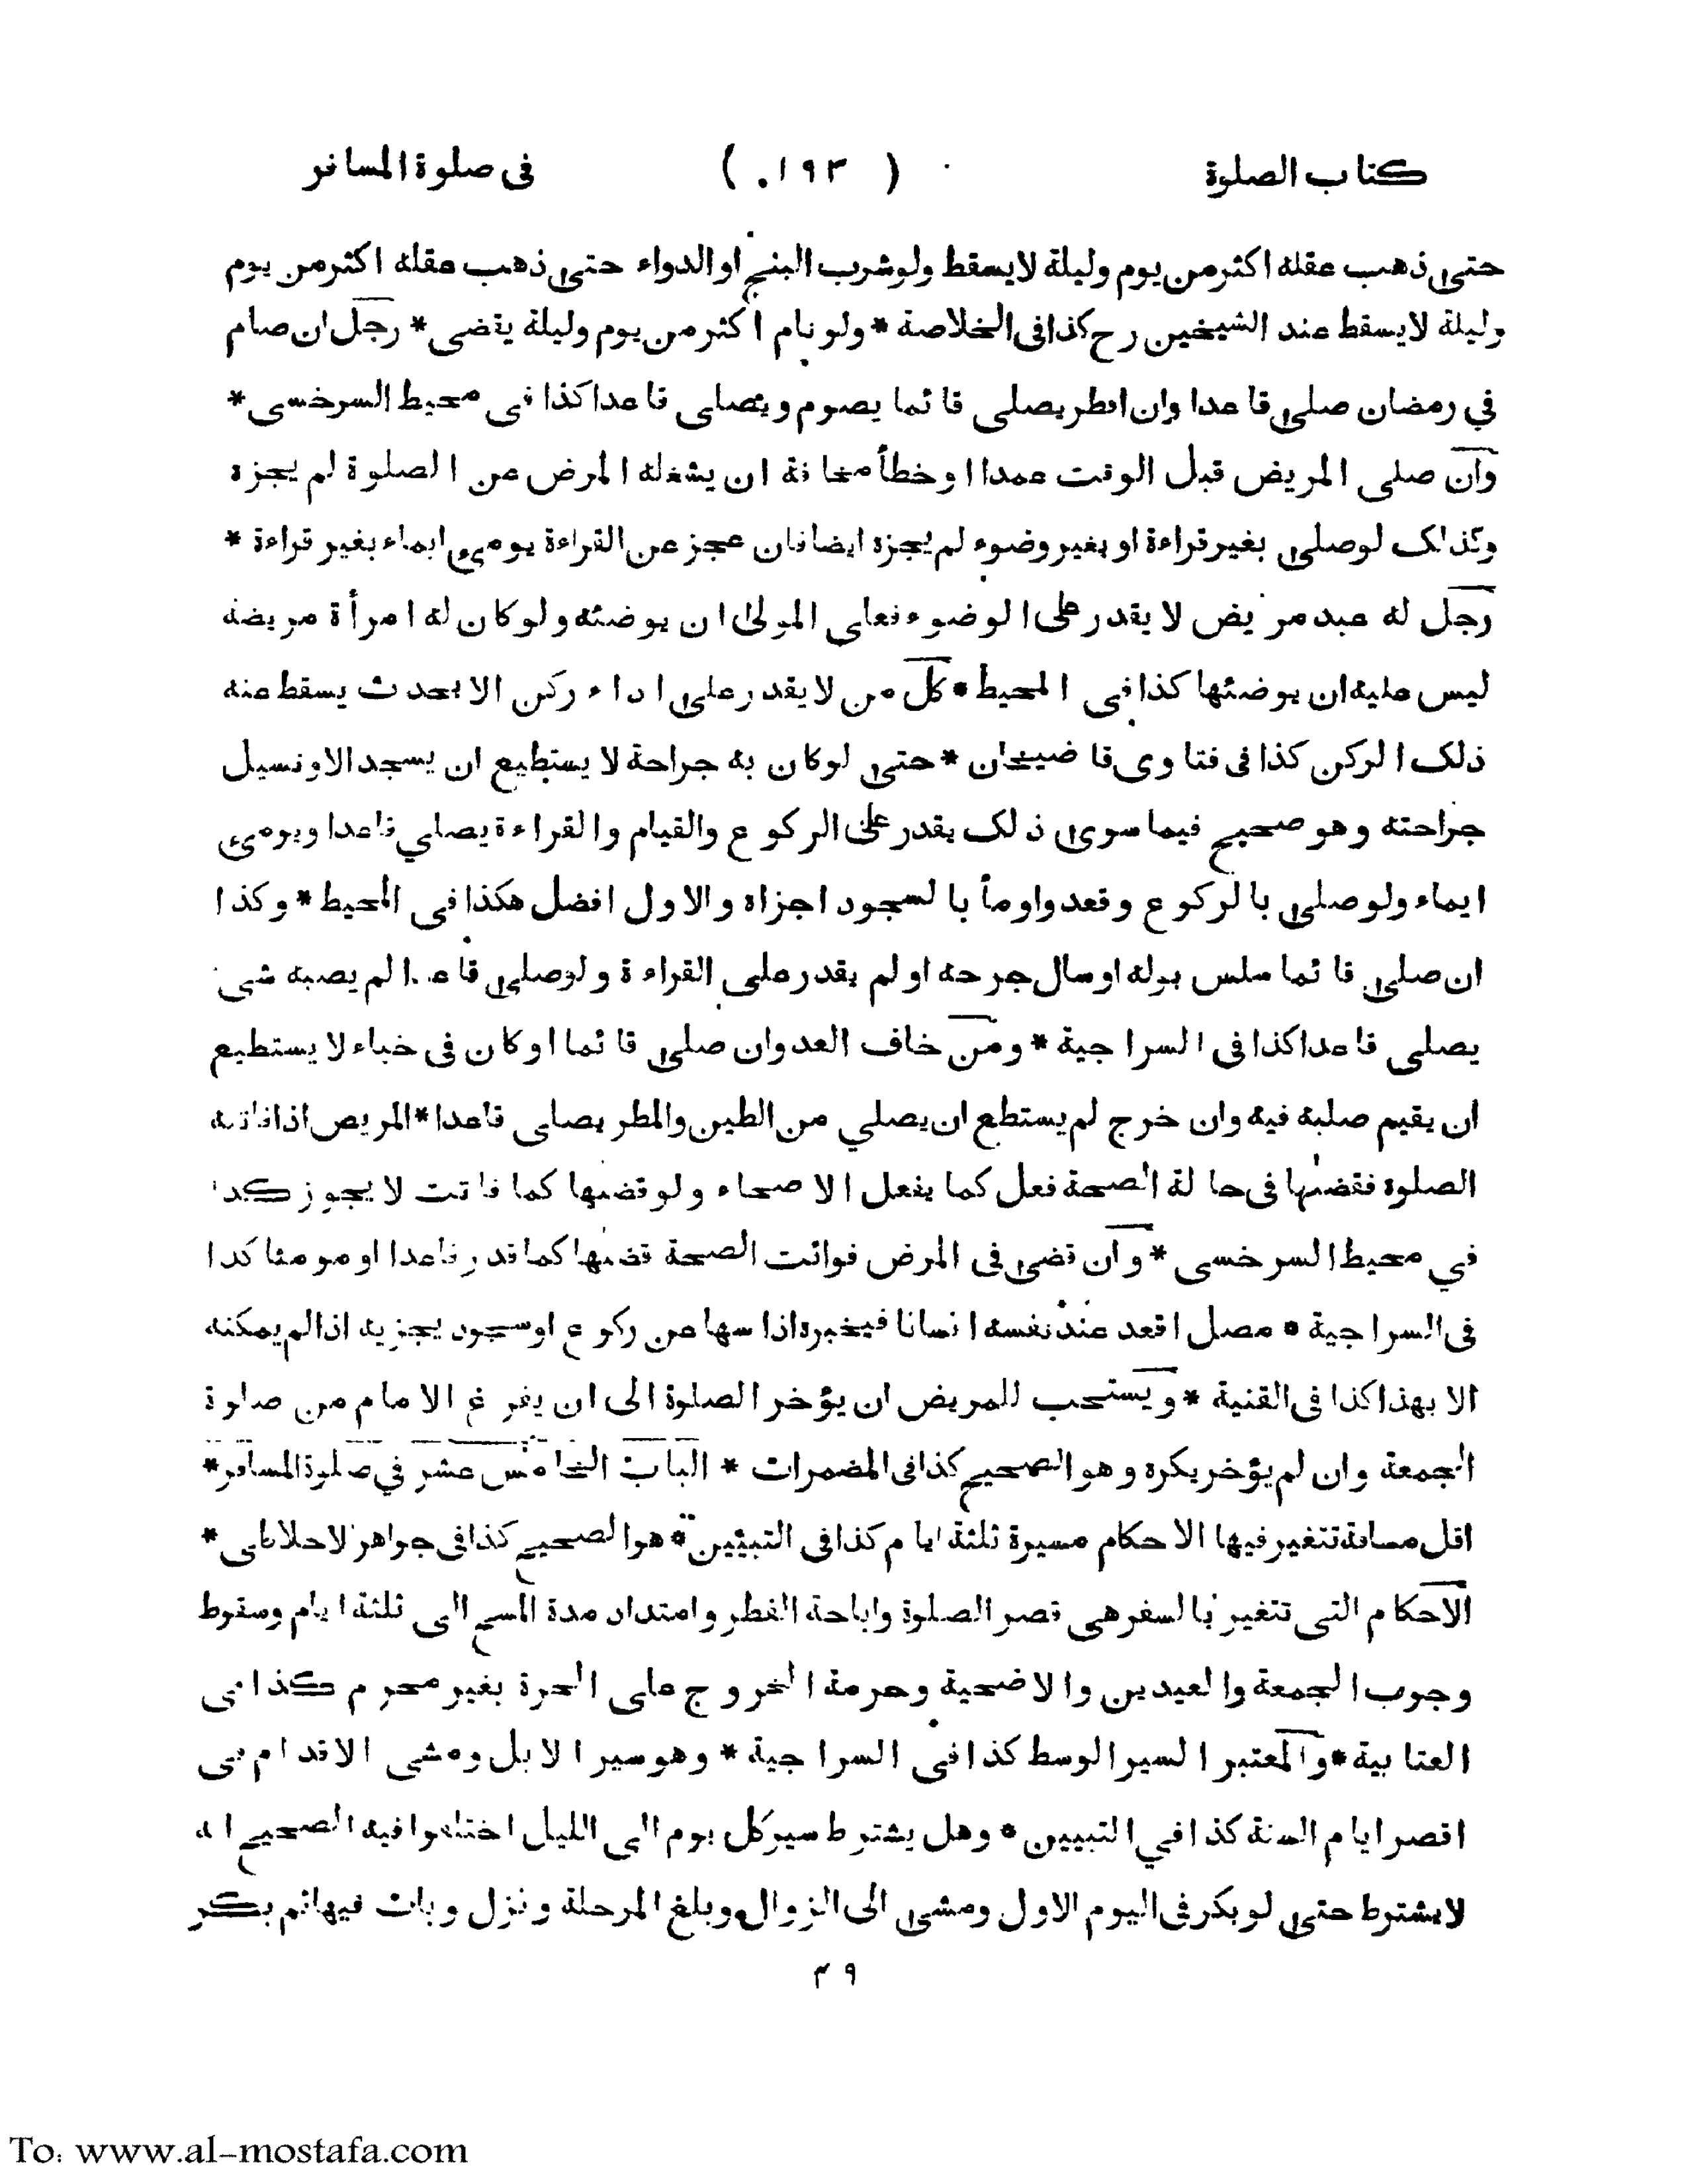 كتاب الصلوة ( ١٩٣ ) فى صلوة المسافر
حتى ذهب عقله اكثر من يوم وليلة لا يسقط ولو شرب البنج او الدواء حتى ذهب عقله اكثر من يوم
وليلة لا يسقط عند الشيخين رح كذا فى الخلاصة * ولو نام اكثر من يوم وليلة يقضى * رجل ان صام
في رمضان صلى قاعدا وان افطر يصلى قائما يصوم ويصلى قاعدا كذا فى محيط السرخسى *
وان صلى المريض قبل الوقت عمدا او خطأ مخافة ان يشغله المرض عن الصلوة لم يجزه
وكذلك لو صلى بغير قراءة او بغير وضوء لم يجزه ايضا فان عجز عن القراءة يومى ايماء بغير قراءة *
رجل له عبد مريض لا يقدر على الوضوء فعلى المولى ان يوضئه ولو كان له امرأة مريضة
ليس عليه ان يوضئها كذا فى المحيط * كل من لا يقدر على اداء ركن الا بحدث يسقط عنه
ذلك الركن كذا فى فتاوى قاضيخان * حتى لو كان به جراحة لا يستطيع ان يسجد الا وتسيل
جراحته وهو صحيح فيما سوى ذلك يقدر على الركوع والقيام والقراءة يصلي قاعدا ويومئ
ايماء ولو صلى بالركوع وقعد واومأ بالسجود اجزاه والاول افضل هكذا فى المحيط * وكذا
ان صلى قائما سلس بوله او سال جرحه او لم يقدر على القراءة ولو صلى قاعدا لم يصبه شى
يصلى قاعدا كذا فى السراجية * ومن خاف العدو ان صلى قائما او كان فى خباء لا يستطيع
ان يقيم صلبه فيه وان خرج لم يستطع ان يصلي من الطين والمطر يصلى قاعدا * المريض اذا فاتته
الصلوة فقضىها فى حالة الصحة فعل كما يفعل الاصحاء ولو قضىها كما فاتت لا يجوز كذا
في محيط السرخسى * وان قضى فى المرض فوائت الصحة قضىها كما قدر قاعدا او مومئا كذا
فى السراجية * مصل اقعد عند نفسه انسانا فيخبره اذا سها عن ركوع او سجود يجزيه اذا لم يمكنه
الا بهذا كذا فى القنية * ويستحب للمريض ان يؤخر الصلوة الى ان يفرغ الامام من صلوة
الجمعة وان لم يؤخر يكره وهو الصحيح كذا فى المضمرات * الباب الخامس عشر في صلوة المسافر *
اقل مسافة تتغير فيها الاحكام مسيرة ثلثة ايام كذا فى التبيين * هو الصحيح كذا فى جواهر الاخلاطى *
الاحكام التى تتغير بالسفر هى قصر الصلوة واباحة الفطر وامتداد مدة المسح الى ثلثة ايام وسقوط
وجوب الجمعة والعيدين والاضحية وحرمة الخروج على الحرة بغير محرم كذا فى
العتابية * والمعتبر السير الوسط كذا فى السراجية * وهو سير الابل ومشى الاقدام فى
اقصر ايام السنة كذا في التبيين * وهل يشترط سير كل يوم الى الليل اختلفوا فيه الصحيح انه
لا يشترط حتى لو بكر فى اليوم الاول ومشى الى الزوال وبلغ المرحلة ونزل وبات فيها ثم بكر
٤٩
To: www.al-mostafa.com